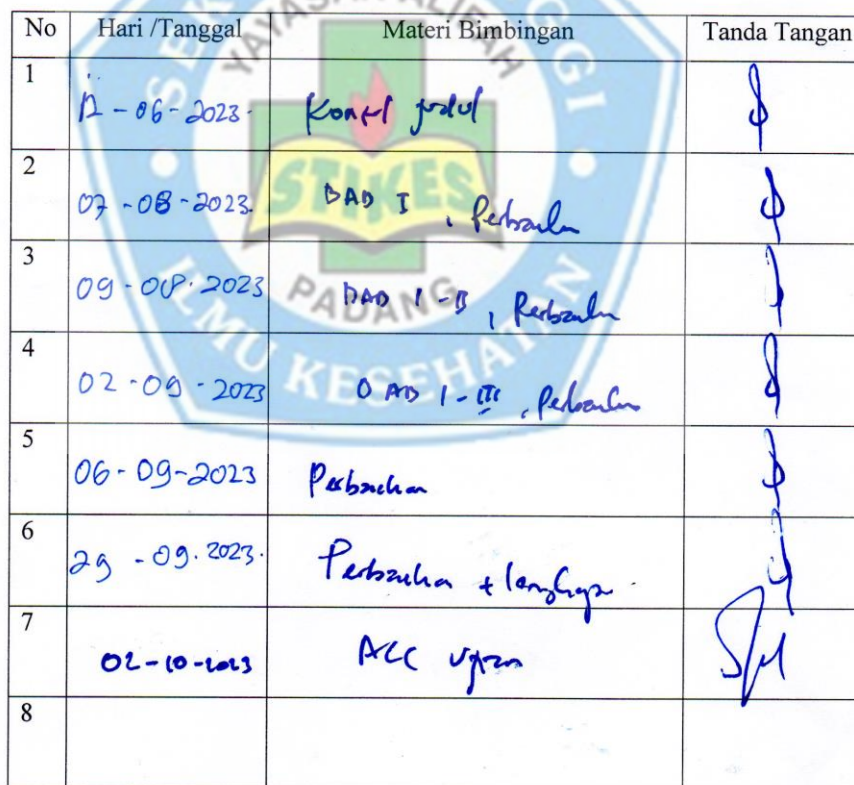 No Hari /Tanggal Materi Bimbingan Tanda Tangan
1 12 - 06 - 2023 Konsul judul
2 07 - 08 - 2023. BAB I, Perbaikan
3 09 - 08 - 2023 BAB I - II, Perbaikan
4 02 - 09 - 2023 BAB I - III, Perbaikan
5 06 - 09 - 2023 Perbaikan
6 29 - 09 . 2023. Perbaikan + lengkapi
7 02 - 10 - 2023 ACC ujian
8
SEK NGGI
YAYASAN ALIFAH
STIKES
PADANG
ILMU KESEHATAN